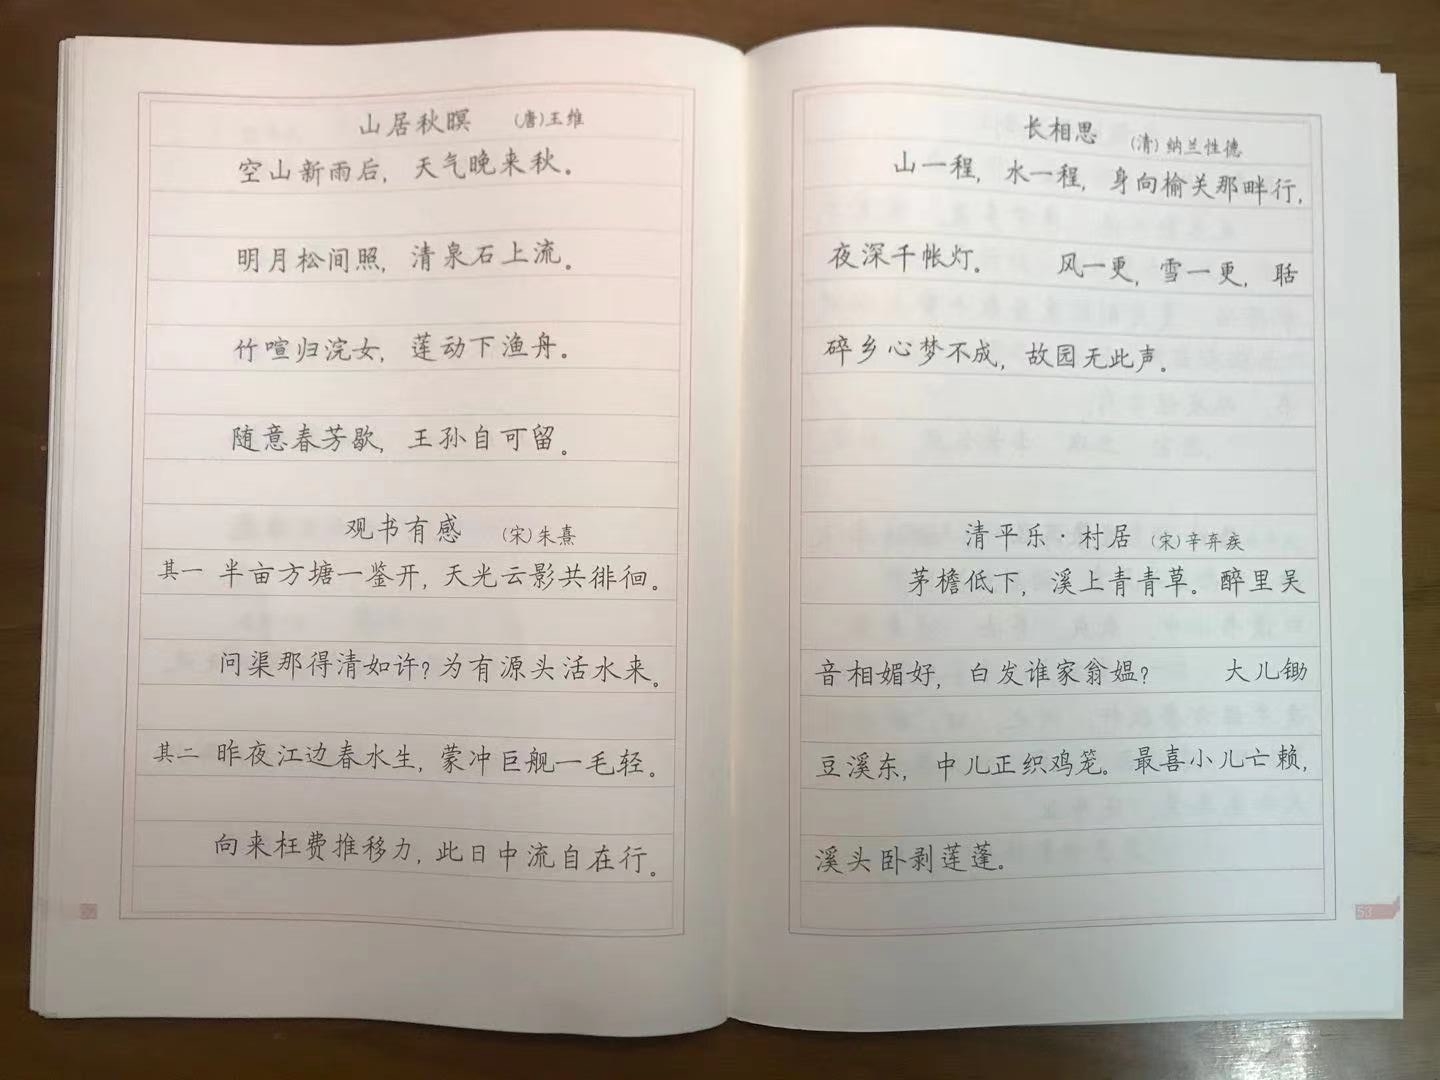 山居秋暝 (唐)王维
空山新雨后，天气晚来秋。
明月松间照，清泉石上流。
竹喧归浣女，莲动下渔舟。
随意春芳歇，王孙自可留。
观书有感 (宋)朱熹
其一 半亩方塘一鉴开，天光云影共徘徊。
问渠那得清如许？为有源头活水来。
其二 昨夜江边春水生，蒙冲巨舰一毛轻。
向来枉费推移力，此日中流自在行。
长相思 (清)纳兰性德
山一程，水一程，身向榆关那畔行，
夜深千帐灯。 风一更，雪一更，聒
碎乡心梦不成，故园无此声。
清平乐·村居 (宋)辛弃疾
茅檐低下，溪上青青草。醉里吴
音相媚好，白发谁家翁媪？ 大儿锄
豆溪东，中儿正织鸡笼。最喜小儿亡赖，
溪头卧剥莲蓬。
53